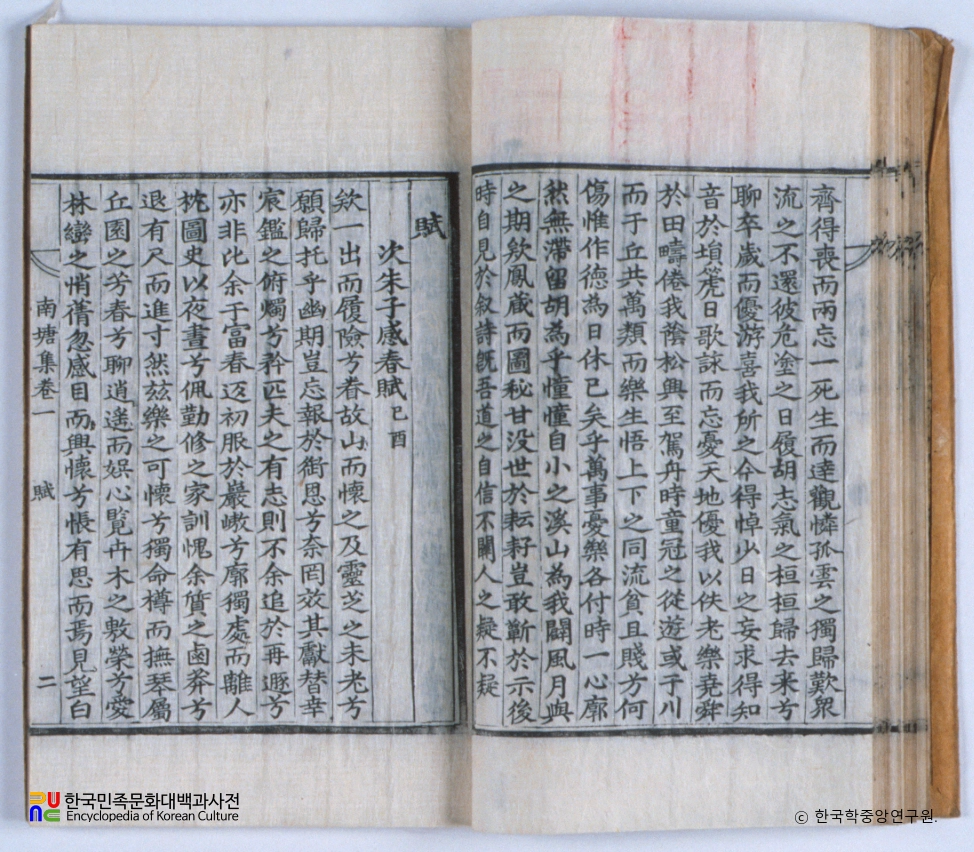 齊得喪而兩忘一死生而達觀憐孤雲之獨歸歎衆
流之不還彼危塗之日履胡志氣之桓桓歸去来兮
聊卒歲而優游喜我所之今得悼少日之妄求得知
音於塤箎日歌詠而忘憂天地優我以佚老樂堯舜
於田疇倦我蔭松興至駕舟時童冠之從遊或于川
而于丘共萬類而樂生悟上下之同流貧且賤方何
傷惟作德為日休已矣乎萬事憂樂各付時一心廓
然無滯留胡為乎憧憧自小之溪山為我闢風月與
之期欸鳳藏而圖秘甘没世於耘耔豈敢蘄於示後
時自見於叙詩旣吾道之自信不關人之疑不疑
賦
次朱子感春賦 己酉
欸一出而履險兮眷故山而懷之及靈芝之未老兮
願歸托乎幽期豈忘報於銜恩兮奈罔效其獻替幸
宸鑑之俯燭兮矜匹夫之有志則不余追於再遯兮
亦非比余于富春返初服於巖嶔兮廓獨處而離人
枕圖史以夜晝兮佩勤修之家訓愧余質之鹵莽兮
退有尺而進寸然兹樂之可懷兮獨命樽而撫琴屬
丘園之芳春兮聊逍遥而娛心覽卉木之敷榮兮愛
林巒之悄蒨忽感目而興懷兮悵有思而焉見望白
南塘集卷一 賦 二
한국민족문화대백과사전
Encyclopedia of Korean Culture
ⓒ 한국학중앙연구원.